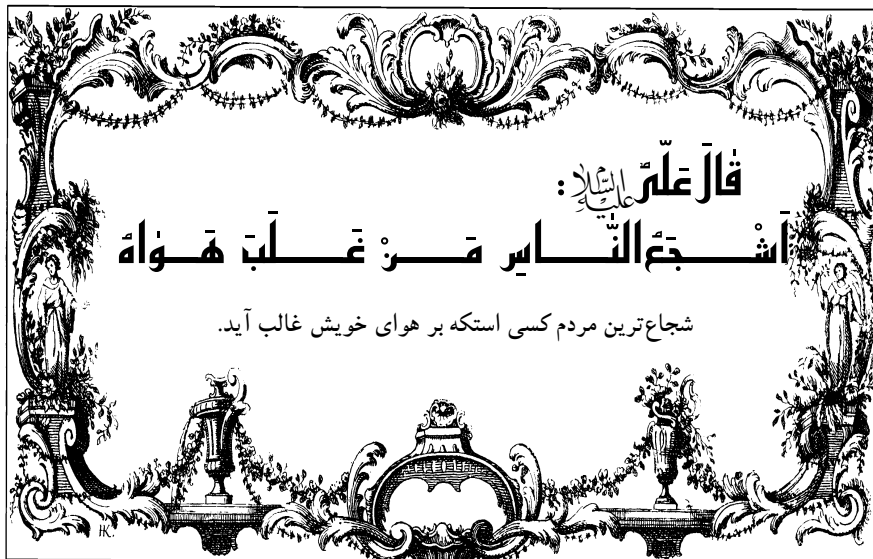 قٰالَ عَلّیٌ عَلَیْهِ السَّلَام :
اَشْـــجَعُ النّٰـــاسِ مَـــنْ غَـــلَبَ هَـــوٰاهُ
شجاع‌ترین مردم کسی استکه بر هوای خویش غالب آید.
HK.